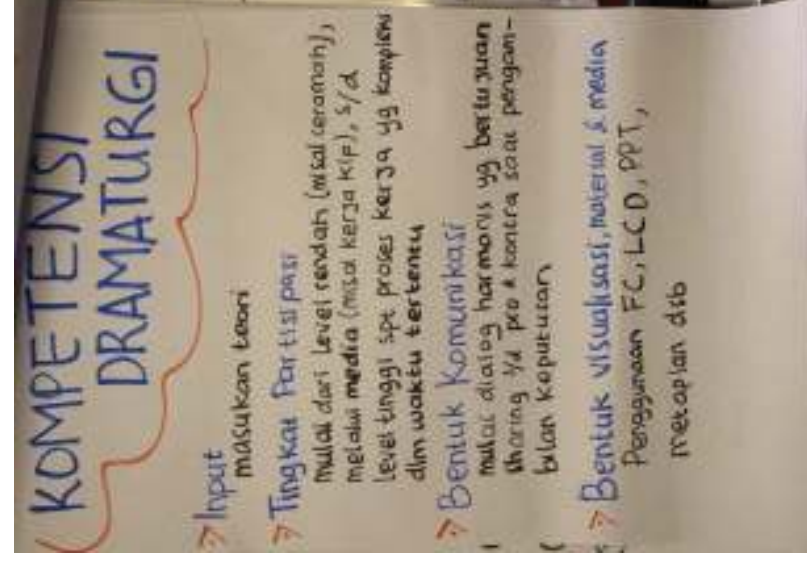 KOMPETENSI
DRAMATURGI
Input
masukan teori
Tingkat Partisipasi
mulai dari level rendah (misal ceramah),
melalui media (misal kerja klp), s/d
level tinggi spt proses kerja yg kompleks
dlm waktu tertentu
Bentuk Komunikasi
mulai dialog harmonis yg bertujuan
sharing s/d pro & kontra saat pengam-
bilan keputusan
Bentuk visualisasi, material & media
Penggunaan FC, LCD, PPT,
metaplan dsb